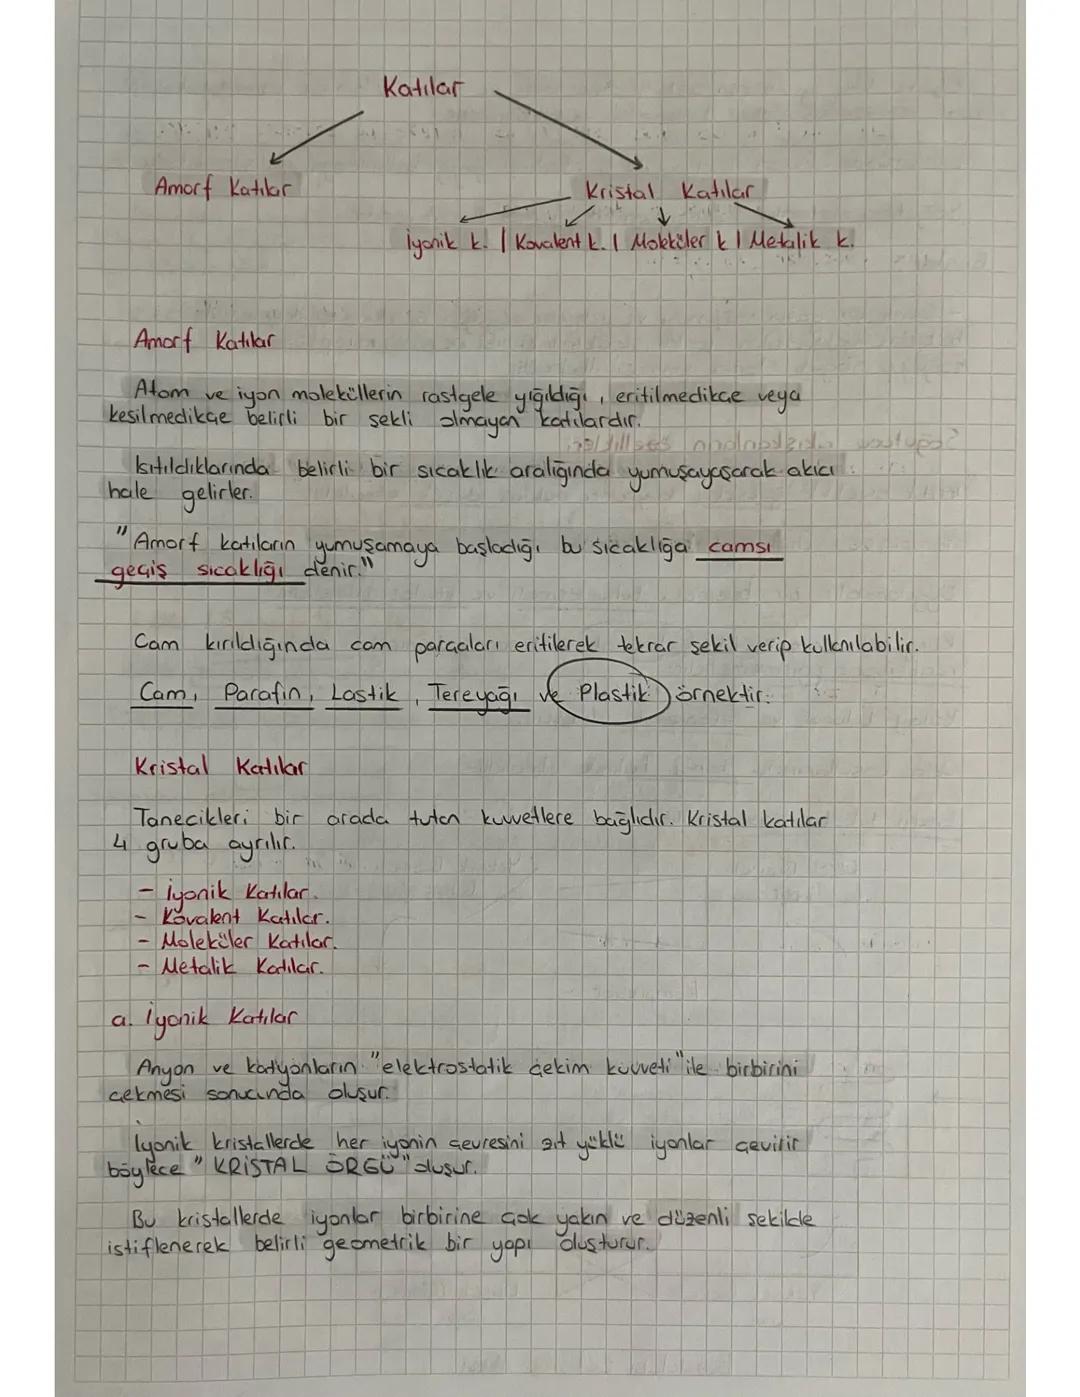 Katılar
Amorf Katılar
Kristal Katılar
İyonik k. | Kovalent k. | Moleküler k | Metalik k.
Amorf Katılar
Atom ve iyon moleküllerin rastgele yığıldığı, eritilmedikçe veya
kesilmedikçe belirli bir şekli olmayan katılardır.
Isıtıldıklarında belirli bir sıcaklık aralığında yumuşayaşarak akıcı
hale gelirler.
"Amorf katıların yumuşamaya başladığı bu sıcaklığa camsı
geçiş sıcaklığı denir."
Cam kırıldığında cam parçaları eritilerek tekrar şekil verip kullcnılabilir.
Cam, Parafin, Lastik, Tereyağı ve Plastik örnektir.
Kristal Katılar
Tanecikleri bir arada tutan kuvvetlere bağlıdır. Kristal katılar
4 gruba ayrılır.
- İyonik Katılar.
- Kovalent Katılar.
- Moleküler Katılar.
- Metalik Katılar.
a. İyonik Katılar
Anyon ve katyonların "elektrostatik çekim kuvveti" ile birbirini
çekmesi sonucunda oluşur.
İyonik kristallerde her iyonin çevresini zıt yüklü iyonlar çevirir
böylece "KRİSTAL ÖRGÜ" oluşur.
Bu kristallerde iyonlar birbirine çok yakın ve düzenli şekilde
istiflenerek belirli geometrik bir yapı oluşturur.